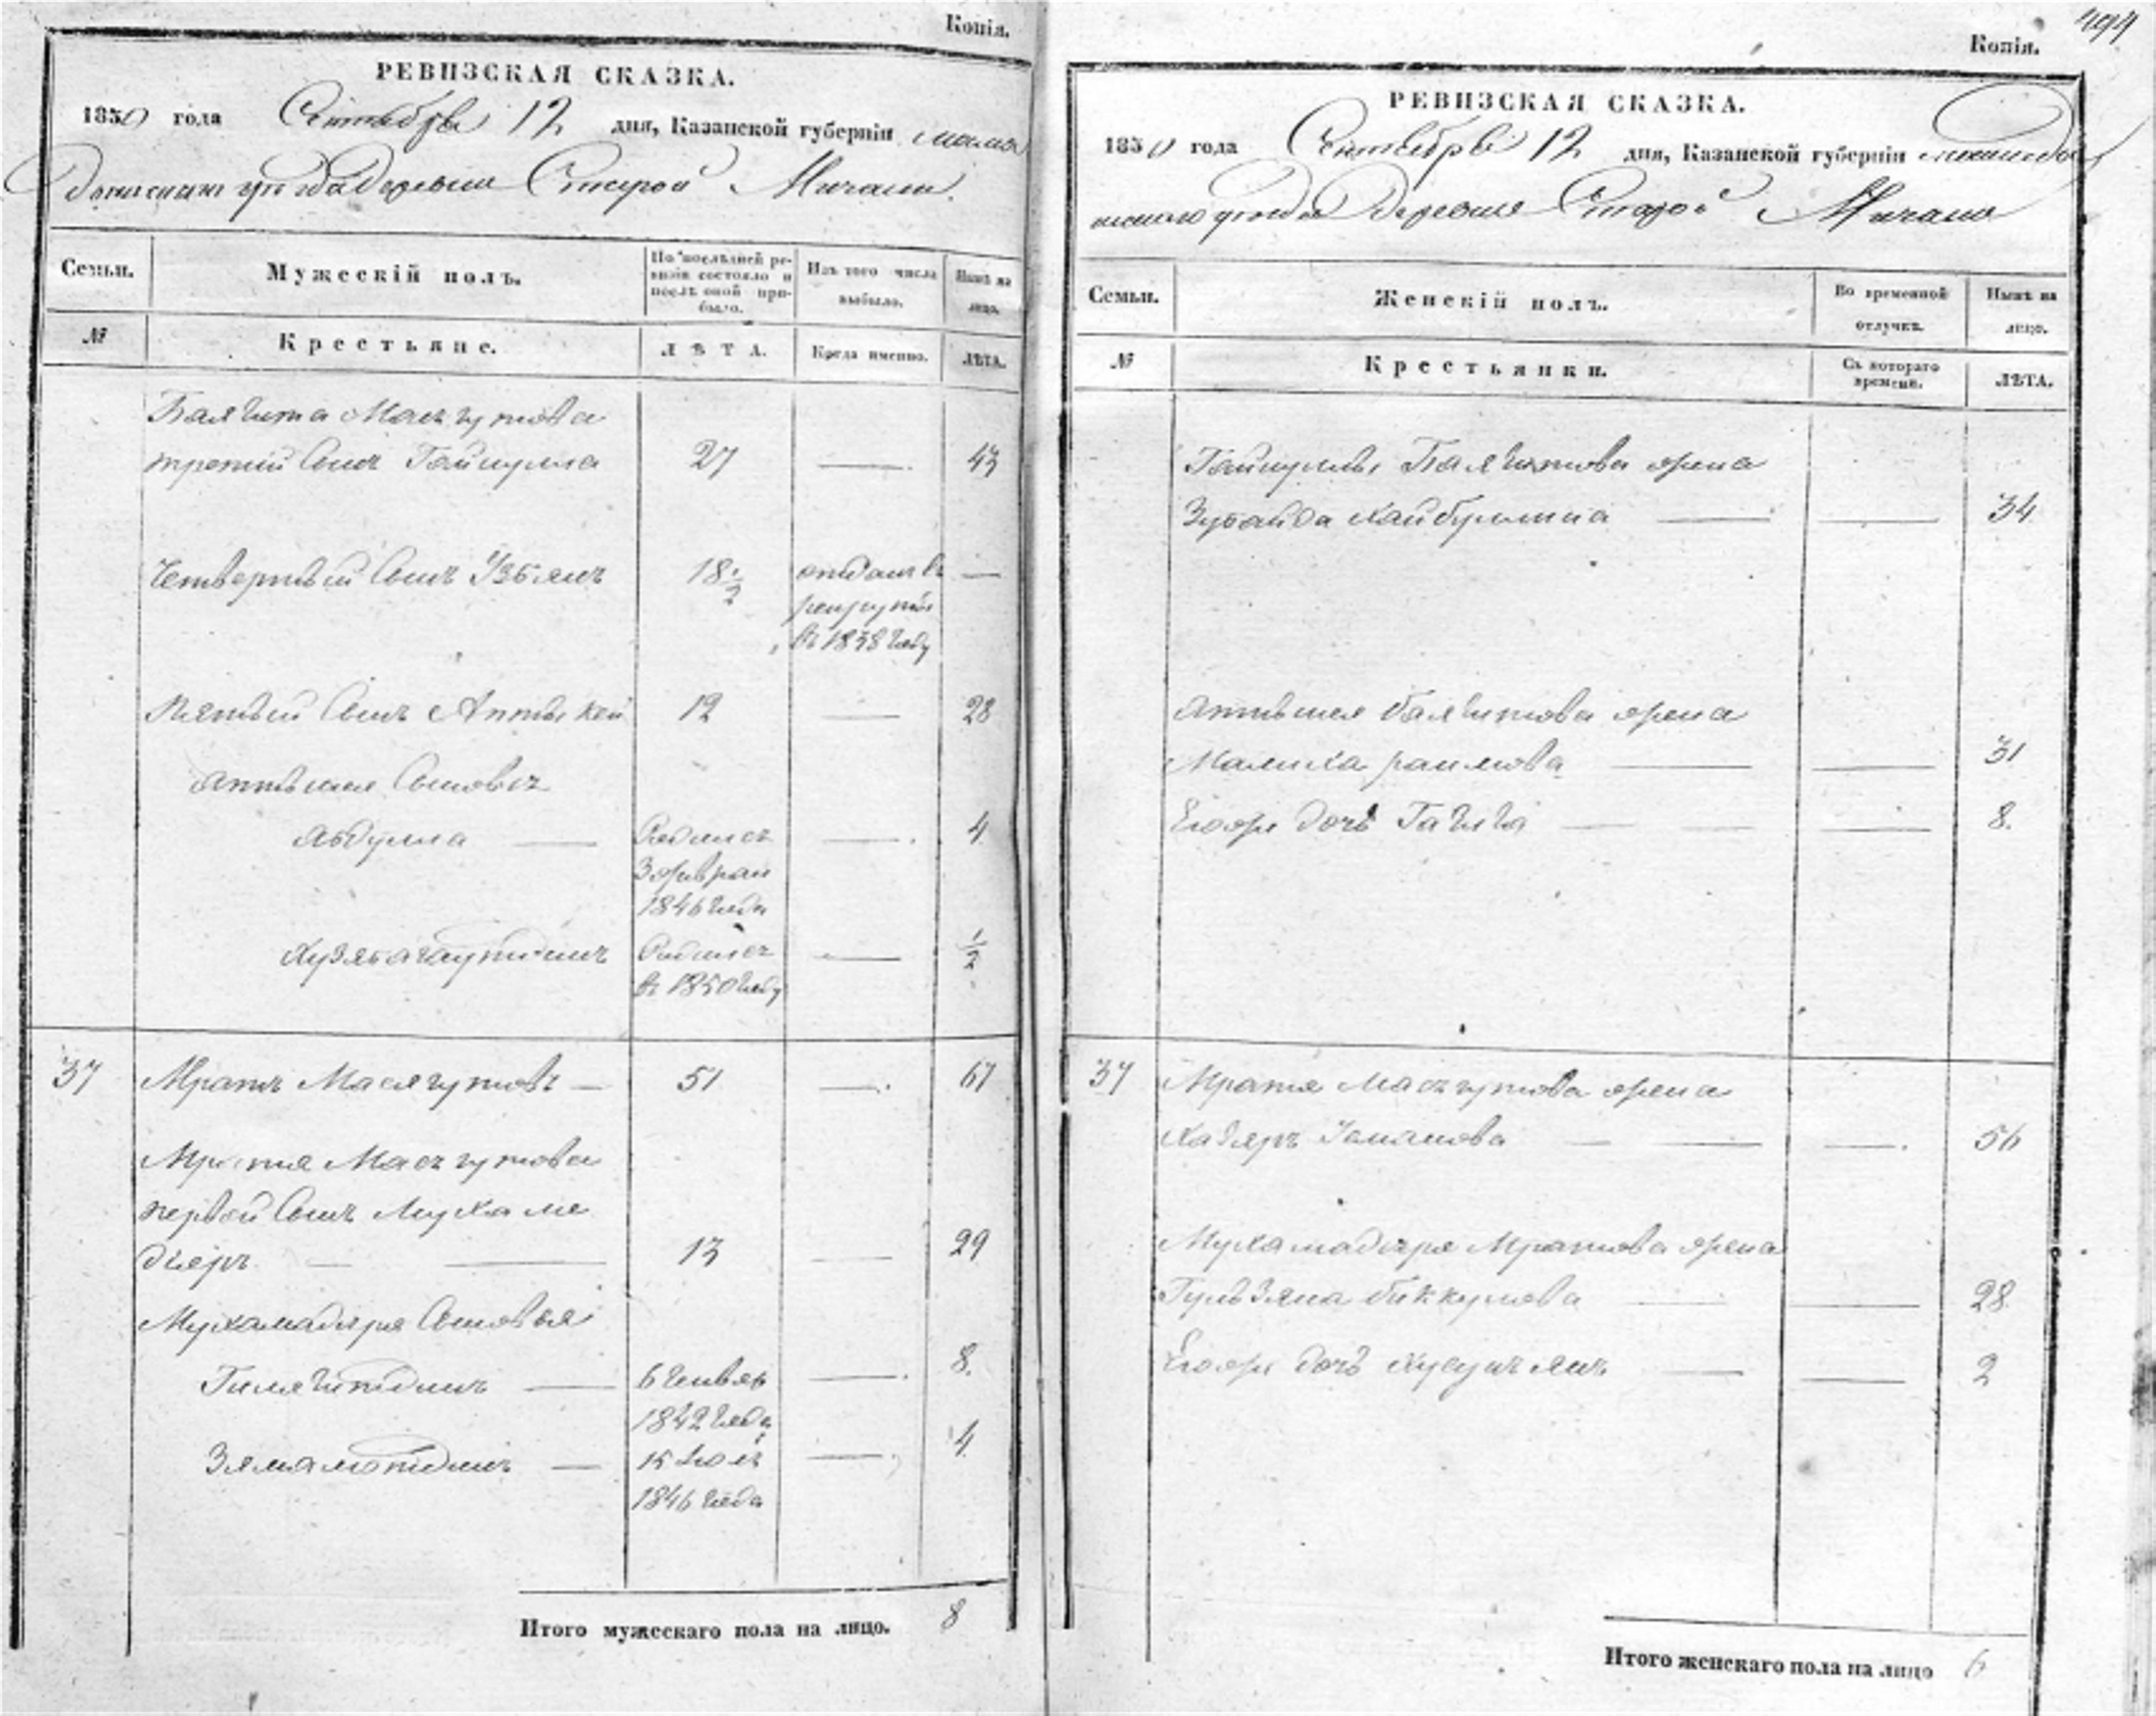 Копія.
РЕВИЗСКАЯ СКАЗКА.
1850 года Сентября 12 дня, Казанской губерніи мама
дышскаго уѣзда деревни Старой Мичани.
Семьи.
Мужескій полъ.
По послѣдней ре-
визіи состояло и
послѣ оной при-
было.
Изъ того числа
выбыло.
Нынѣ на
лицо.
№
Крестьяне.
ЛѢТА.
Когда именно.
ЛѢТА.
Баязита Масгутова
третій Сынъ Гайнулла 27 — 43
Четвертый Сынъ Узбякъ 18 1/2 отданъ въ —
рекруты
въ 1838 году
Пятый Сынъ Аптыкей 12 — 28
Сыновья
Абдулла — Родился — 4
3 февраля
1846 года
Родился — 1/2
въ 1850 году
37 Мратъ Масягутовъ — 51 — 67
Мратя Масгутова
первой Сынъ Мухаме
дьяръ — 13 — 29
Мухамадяра Сыновья
— 6 Генваря — 8.
1842 года
— 15 Іюля — 4
1846 года
Итого мужескаго пола на лицо. 8
494
Копія.
РЕВИЗСКАЯ СКАЗКА.
1850 года Сентября 12 дня, Казанской губерніи мамады
шскаго уѣзда Деревни Старой Мичани
Семьи.
Женскій полъ.
Во временной
отлучкѣ.
Нынѣ на
лицо.
№
Крестьянки.
Съ котораго
времени.
ЛѢТА.
Гайнуллы Баязитова жена
Зубайда Хайбуллина — — 34
Баязитова жена
Малика раимова — — 31
Егожъ дочь — — 8.
37 Мратя Масгутова жена
— — 56
Мухамадяра Мратова жена
Гульзяна биккулова — — 28
Егожъ дочь — — 2
Итого женскаго пола на лицо 6